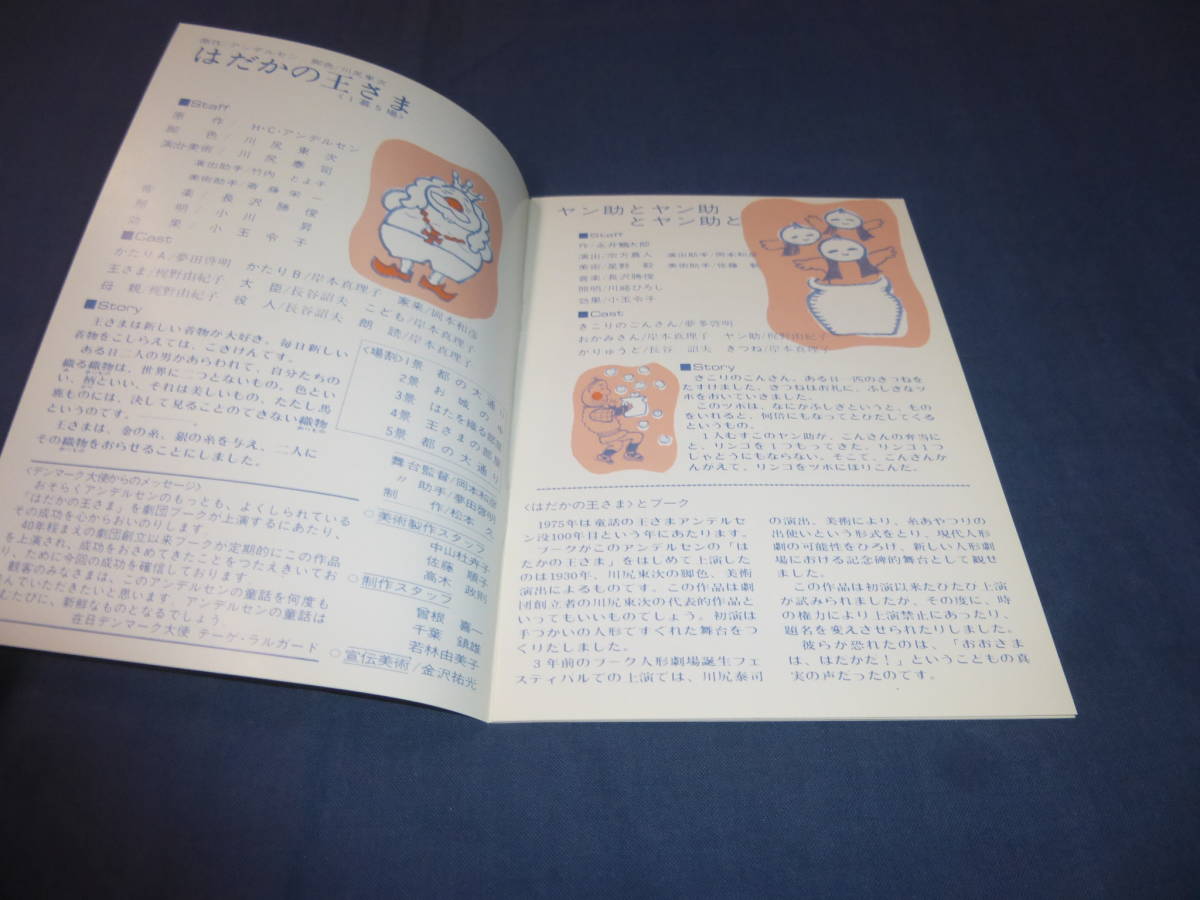 原作/アンデルセン 脚色/川尻東次
はだかの王さま
〈1幕5場〉
■Staff
原作/H・C・アンデルセン
脚色/川尻東次
演出美術/川尻泰司
演出助手/竹内とよ子
美術助手/斎藤栄一
音楽/長沢勝俊
照明/小川昇
効果/小玉令子
■Cast
かたりA/夢田啓明 かたりB/岸本真理子 家来/岡本和彦
王さま/梶野由紀子 大臣/長谷詔夫 こども/岸本真理子
母親/梶野由紀子 役人/長谷詔夫 朗読/岸本真理子
■Story
王さまは新しい着物が大好き。毎日新しい
着物をこしらえては、ごきげんです。
ある日二人の男があらわれて、自分たちの
織る織物は、世界に二つとないもの。色とい
い、柄といい、それは美しいもの。ただし馬
鹿ものには、決して見ることのできない織物
というのです。
王さまは、金の糸、銀の糸を与え、二人に
その織物をおらせることにしました。
〈場割〉1景 都の大通り
2景 お城の中
3景 はたを織る部屋
4景 王さまの部屋
5景 都の大通り
舞台監督/岡本和彦
〃 助手/夢田啓明
制作/松本 久
○美術製作スタッフ
中山杜卉子
佐藤順子
高木政則
○制作スタッフ
曽根喜一
千葉鎮雄
若林由美子
○宣伝美術/金沢祐光
〈デンマーク大使からのメッセージ〉
おそらくアンデルセンのもっとも、よくしられている
「はだかの王さま」を劇団プークが上演するにあたり、
その成功を心からおいのりします。
40年程まえの劇団創立以来プークが定期的にこの作品
を上演され、成功をおさめてきたことをつたえきいてお
り、ために今回の成功を確信しております。
顧客のみなさまは、このアンデルセンの童話を何度も
んでいただきたいと思います。アンデルセンの童話は
むたびに、新鮮なものとなるでしょう。
在日デンマーク大使 テーゲ・ラルガード
ヤン助とヤン助
とヤン助と
■Staff
作/永井鱗太郎
演出/宗方真人 演出助手/岡本和彦
美術/星野 毅 美術助手/佐藤
音楽/長沢勝俊
照明/川崎ひろし
効果/小玉令子
■Cast
きこりのごんさん/夢多啓明
おかみさん/岸本真理子 ヤン助/梶野由紀子
かりゅうど/長谷 詔夫 きつね/岸本真理子
■Story
きこりのごんさん、ある日一匹のきつねを
たすけました。きつねはお礼に、ふしぎなツ
ボをおいていきました。
このツボは、なにがふしぎというと、もの
をいれると、何倍にもなってとびだしてくる
というもの。
1人むすこのヤン助が、ごんさんの弁当に
と、リンゴを1つもってきた。リンゴ1つじ
しゃどうにもならない。そこで、ごんさんか
んがえて、リンゴをツボにほりこんだ。
〈はだかの王さま〉とプーク
1975年は童話の王さまアンデルセ
ン没100年目という年にあたります。
プークがこのアンデルセンの「は
だかの王さま」をはじめて上演した
のは1930年、川尻東次の脚色、美術
演出によるものです。この作品は劇
団創立者の川尻東次の代表的作品と
いってもいいものでしょう。初演は
手づかいの人形ですぐれた舞台をつ
くりだしました。
3年前のプーク人形劇場誕生フェ
スティバルでの上演では、川尻泰司
の演出、美術により、糸あやつりの
出使いという形式をとり、現代人形
劇の可能性をひろげ、新しい人形劇
場における記念碑的舞台として観せ
ました。
この作品は初演以来たびたび上演
が試みられましたが、その度に、時
の権力により上演禁止にあったり、
題名を変えさせられたりしました。
彼らが恐れたのは、「おおさま
は、はだかだ！」ということもの真
実の声だったのです。